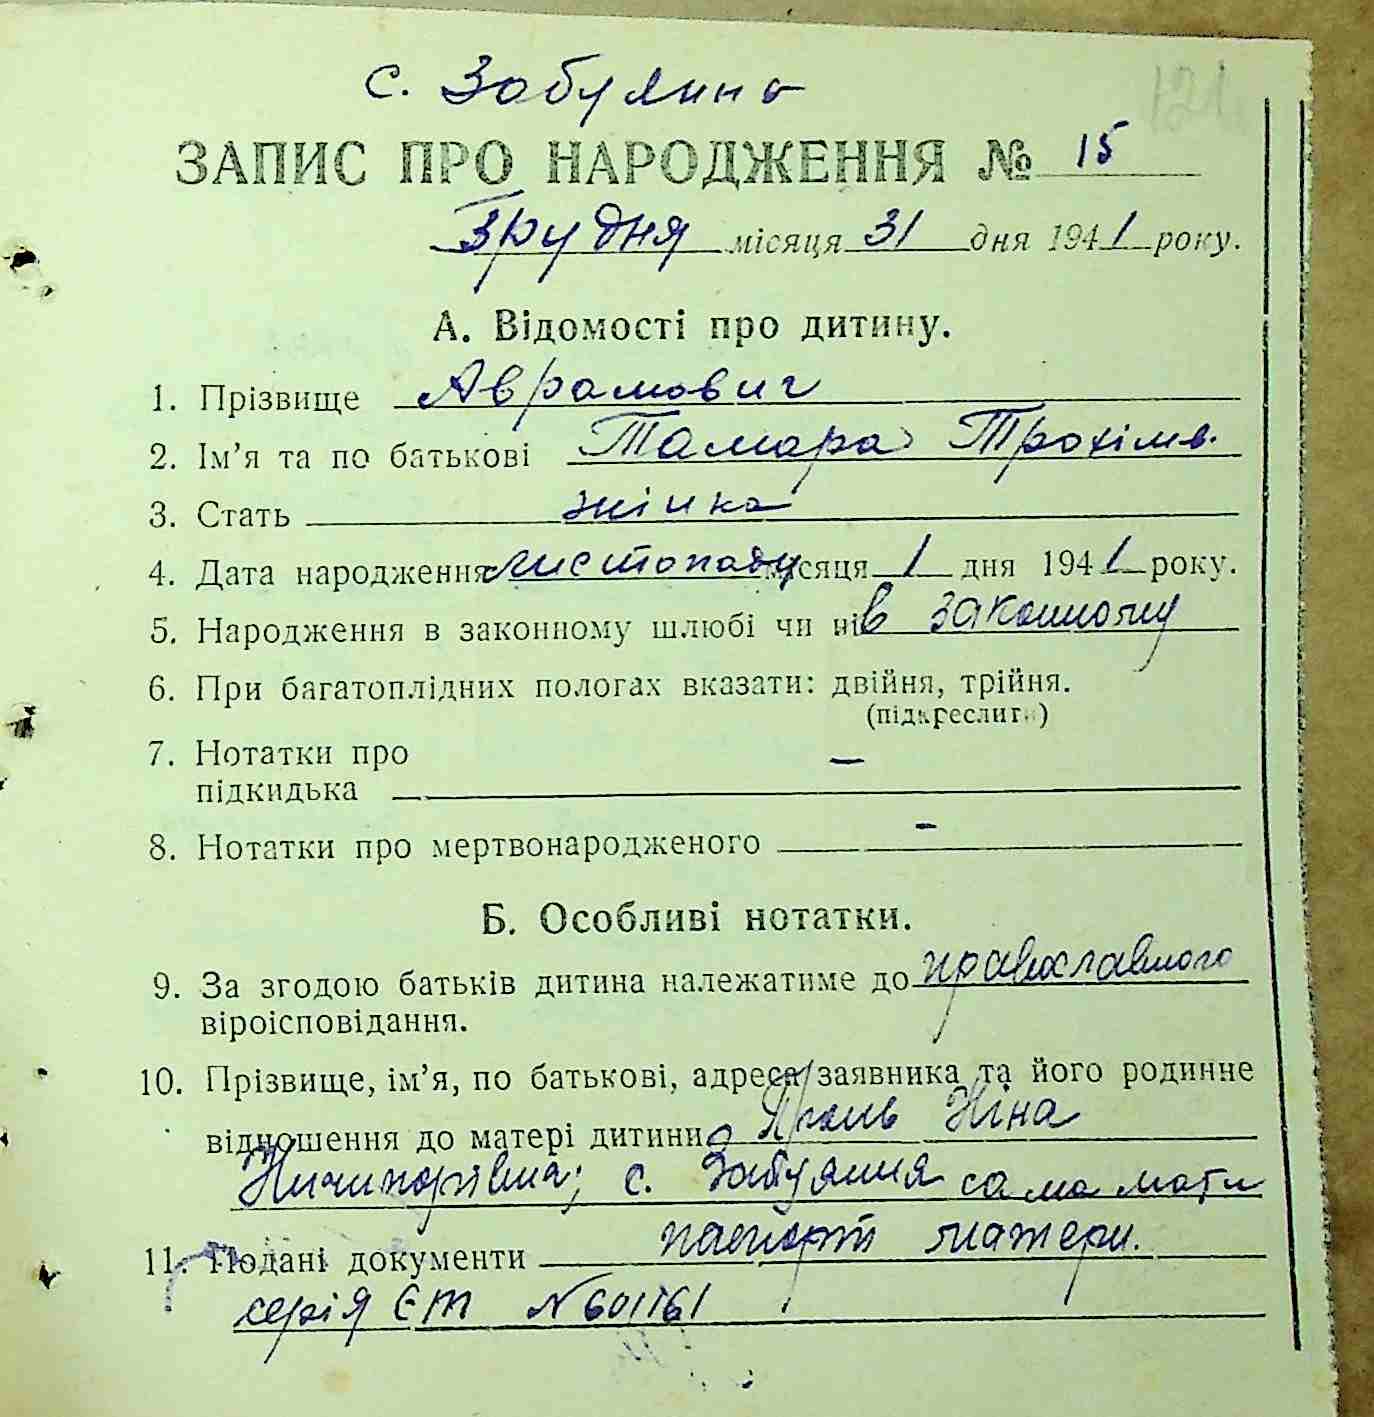 с. Забуяння
121
ЗАПИС ПРО НАРОДЖЕННЯ № 15
Грудня місяця 31 дня 1941 року.
А. Відомості про дитину.
1. Прізвище Аврамович
2. Ім’я та по батькові Тамара Трохімв.
3. Стать жінка
4. Дата народження листопаду місяця 1 дня 1941 року.
5. Народження в законному шлюбі чи ні в законному
6. При багатоплідних пологах вказати: двійня, трійня.
(підкреслити)
7. Нотатки про —
підкидька
8. Нотатки про мертвонародженого -
Б. Особливі нотатки.
9. За згодою батьків дитина належатиме до православного
віроісповідання.
10. Прізвище, ім’я, по батькові, адреса заявника та його родинне
відношення до матері дитини Ніна
Ничипорівна; с. Забуяння сама мати
11. Подані документи паспорт матери.
серія ЄТ № 601161